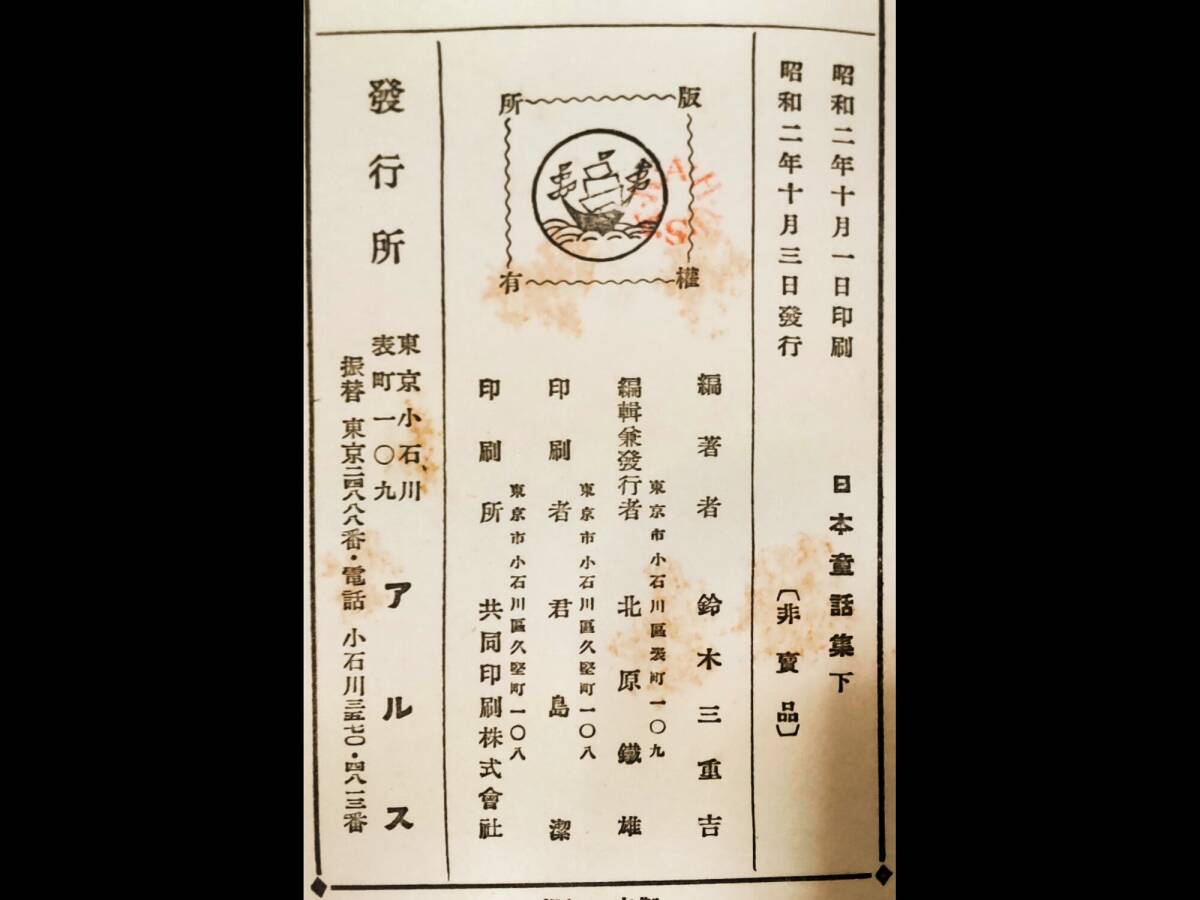 昭和二年十月一日印刷
昭和二年十月三日發行
日本童話集下
〔非賣品〕
版權所有
編著者 鈴木三重吉
東京市小石川區表町一〇九
編輯兼發行者 北原鐵雄
東京市小石川區久堅町一〇八
印刷者 君島潔
東京市小石川區久堅町一〇八
印刷所 共同印刷株式會社
發行所
東京小石川
表町一〇九
アルス
振替 東京二四八八八番・電話 小石川三五七〇・四八一三番